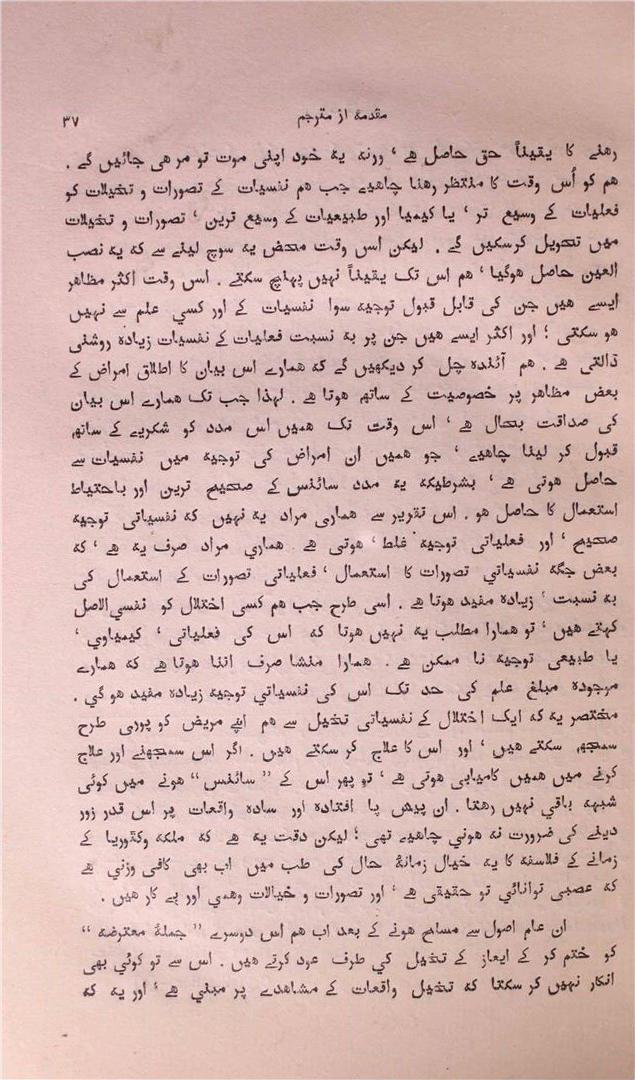 مقدمۂ از مترجم ۳۷
رهنے کا یقیناً حق حاصل هے ، ورنه یه خود اپنی موت تو مر هی جائیں گے .
هم کو اُس وقت کا منتظر رهنا چاهیے جب هم نفسیات کے تصورات و تخیلات کو
فعلیات کے وسیع تر ، یا کیمیا اور طبیعیات کے وسیع ترین ، تصورات و تخیلات
میں تحویل کرسکیں گے . لیکن اس وقت محض یه سوچ لینے سے که یه نصب
العین حاصل هوگیا ، هم اس تک یقیناً نہیں پہنچ سکتے . اس وقت اکثر مظاهر
ایسے هیں جن کی قابل قبول توجیه سوا نفسیات کے اور کسي علم سے نہیں
هو سکتی ؛ اور اکثر ایسے هیں جن پر به نسبت فعلیات کے نفسیات زیاده روشنی
ڈالتی هے . هم آئنده چل کر دیکھیں گے که همارے اس بیان کا اطلاق امراض کے
بعض مظاهر پر خصوصیت کے ساتھ هوتا هے . لہذا جب تک همارے اس بیان
کی صداقت بحال هے ، اس وقت تک همیں اس مدد کو شکریے کے ساتھ
قبول کر لینا چاهیے ، جو همیں ان امراض کی توجیه میں نفسیات سے
حاصل هوتی هے ، بشرطیکه یه مدد سائنس کے صحیح ترین اور باحتیاط
استعمال کا حاصل هو . اس تقریر سے هماری مراد یه نہیں که نفسیاتی توجیه
صحیح ، اور فعلیاتی توجیه غلط ، هوتی هے . هماري مراد صرف یه هے ، که
بعض جگه نفسیاتي تصورات کا استعمال ، فعلیاتی تصورات کے استعمال کی
به نسبت ، زیاده مفید هوتا هے . اسی طرح جب هم کسی اختلال کو نفسي الاصل
کہتے هیں ، تو همارا مطلب یه نہیں هوتا که اس کی فعلیاتی ، کیمیاوي ،
یا طبیعی توجیه نا ممکن هے . همارا منشا صرف اتنا هوتا هے که همارے
موجوده مبلغ علم کی حد تک اس کی نفسیاتي توجیه زیاده مفید هو گي .
مختصر یه که ایک اختلال کے نفسیاتی تخیل سے هم اپنے مریض کو پوری طرح
سمجھ سکتے هیں ، اور اس کا علاج کر سکتے هیں . اگر اس سمجھنے اور علاج
کرنے میں همیں کامیابی هوتی هے ، تو پھر اس کے ” سائنس “ هونے میں کوئی
شبہه باقي نہیں رهتا . ان پیش پا افتاده اور ساده واقعات پر اس قدر زور
دینے کی ضرورت نه هوني چاهیے تھی ؛ لیکن دقت یه هے که ملکه وکٹوریا کے
زمانے کے فلاسفه کا یه خیال زمانۂ حال کی طب میں اب بھی کافی وزني هے
که عصبی توانائي تو حقیقی هے ، اور تصورات و خیالات وهمي اور بے کار هیں .
ان عام اصول سے مسلح هونے کے بعد اب هم اس دوسرے ” جملۂ معترضه “
کو ختم کر کے ایعاز کے تخیل کي طرف عود کرتے هیں . اس سے تو کوئي بھی
انکار نہیں کر سکتا که تخیل واقعات کے مشاهدے پر مبني هے ، اور یه که